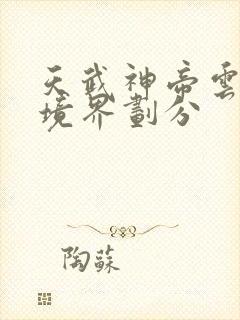 天武神帝雲
境界劃分
陶蘇